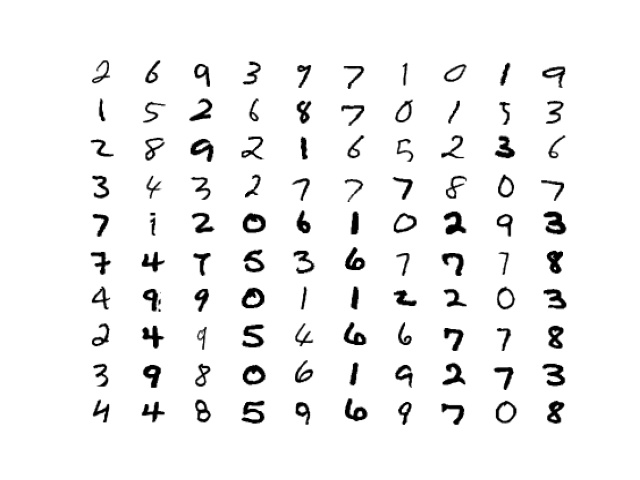 2 6 9 3 9 7 1 0 1 9
1 5 2 6 8 7 0 1 5 3
2 8 9 2 1 6 5 2 3 6
3 4 3 2 7 7 7 8 0 7
7 1 2 0 6 1 0 2 9 3
7 4 7 5 3 6 7 7 7 8
4 9 9 0 1 1 2 2 0 3
2 4 9 5 4 6 6 7 7 8
3 9 8 0 6 1 9 2 7 3
4 4 8 5 9 6 9 7 0 8